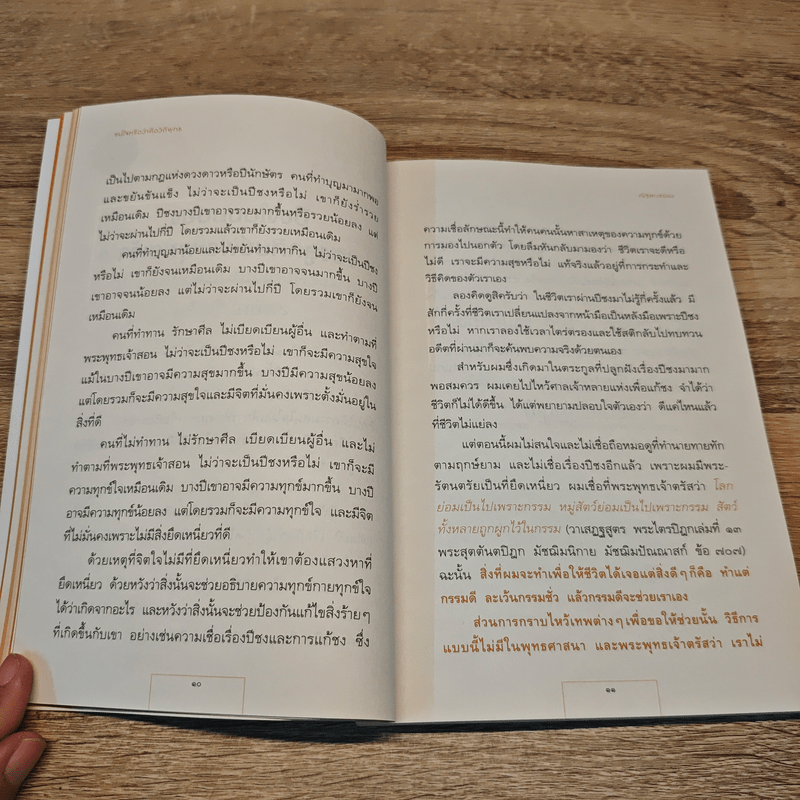 เป็นไปตามกฎแห่งดวงดาวหรือปีนักษัตร คนที่ทำบุญมามากพอ
และขยันขันแข็ง ไม่ว่าจะเป็นปีชงหรือไม่ เขาก็ยังร่ำรวย
เหมือนเดิม ปีชงบางปีเขาอาจรวยมากขึ้นหรือรวยน้อยลง แต่
ไม่ว่าจะผ่านไปกี่ปี โดยรวมแล้วเขาก็ยังรวยเหมือนเดิม
คนที่ทำบุญมาน้อยและไม่ขยันทำมาหากิน ไม่ว่าจะเป็นปีชง
หรือไม่ เขาก็ยังจนเหมือนเดิม บางปีเขาอาจจนมากขึ้น บางปี
เขาอาจจนน้อยลง แต่ไม่ว่าจะผ่านไปกี่ปี โดยรวมเขาก็ยังจน
เหมือนเดิม
คนที่ทำทาน รักษาศีล ไม่เบียดเบียนผู้อื่น และทำตามที่
พระพุทธเจ้าสอน ไม่ว่าจะเป็นปีชงหรือไม่ เขาก็จะมีความสุขใจ
แม้ในบางปีเขาอาจจะมีความสุขมากขึ้น บางปีมีความสุขน้อยลง
แต่โดยรวมก็จะมีความสุขใจและมีจิตที่มั่นคงเพราะตั้งมั่นอยู่ใน
สิ่งที่ดี
คนที่ไม่ทำทาน ไม่รักษาศีล เบียดเบียนผู้อื่น และไม่
ทำตามที่พระพุทธเจ้าสอน ไม่ว่าจะเป็นปีชงหรือไม่ เขาก็จะมี
ความทุกข์ใจเหมือนเดิม บางปีเขาอาจมีความทุกข์มากขึ้น บางปี
อาจมีความทุกข์น้อยลง แต่โดยรวมก็จะมีความทุกข์ใจ และมีจิต
ที่ไม่มั่นคงเพราะไม่มีสิ่งยึดเหนี่ยวที่ดี
ด้วยเหตุที่จิตใจไม่มีที่ยึดเหนี่ยวทำให้เขาต้องแสวงหาที่
ยึดเหนี่ยว ด้วยหวังว่าสิ่งนั้นจะช่วยอธิบายความทุกข์กายทุกข์ใจ
ได้ว่าเกิดจากอะไร และหวังว่าสิ่งนั้นจะช่วยป้องกันแก้ไขสิ่งร้ายๆ
ที่เกิดขึ้นกับเขา อย่างเช่นความเชื่อเรื่องปีชงและการแก้ชง ซึ่ง
๑๐
ความเชื่อลักษณะนี้ทำให้คนคนนั้นหาสาเหตุของความทุกข์ด้วย
การมองไปนอกตัว โดยลืมหันกลับมามองว่า ชีวิตเราจะดีหรือ
ไม่ดี เราจะมีความสุขหรือไม่ แท้จริงแล้วอยู่ที่การกระทำและ
วิธีคิดของตัวเราเอง
ลองคิดดูสิครับว่า ในชีวิตเราผ่านปีชงมาไม่รู้กี่ครั้งแล้ว มี
สักกี่ครั้งที่ชีวิตเราเปลี่ยนแปลงจากหน้ามือเป็นหลังมือเพราะปีชง
หรือไม่ หากเราลองใช้เวลาไตร่ตรองและใช้สติกลับไปทบทวน
อดีตที่ผ่านมาก็จะค้นพบความจริงด้วยตนเอง
สำหรับผมซึ่งเกิดมาในตระกูลที่ปลูกฝังเรื่องปีชงมามาก
พอสมควร ผมเคยไปไหว้ศาลเจ้าหลายแห่งเพื่อแก้ชง จำได้ว่า
ชีวิตก็ไม่ได้ดีขึ้น ได้แต่พยายามปลอบใจตัวเองว่า ดีแค่ไหนแล้ว
ที่ชีวิตไม่แย่ลง
แต่ตอนนี้ผมไม่สนใจและไม่เชื่อถือหมอดูที่ทำนายทายทัก
ตามฤกษ์ยาม และไม่เชื่อเรื่องปีชงอีกแล้ว เพราะผมมีพระ-
รัตนตรัยเป็นที่ยึดเหนี่ยว ผมเชื่อที่พระพุทธเจ้าตรัสว่า โลก
ย่อมเป็นไปเพราะกรรม หมู่สัตว์ย่อมเป็นไปเพราะกรรม สัตว์
ทั้งหลายถูกผูกไว้ในกรรม (วาเสฏฐสูตร พระไตรปิฎกเล่มที่ ๑๓
พระสุตตันตปิฎก มัชฌิมนิกาย มัชฌิมปัณณาสก์ ข้อ ๗๐๗)
ฉะนั้น สิ่งที่ผมจะทำเพื่อให้ชีวิตได้เจอแต่สิ่งดีๆก็คือ ทำแต่
กรรมดี ละเว้นกรรมชั่ว แล้วกรรมดีจะช่วยเราเอง
ส่วนการกราบไหว้เทพต่างๆเพื่อขอให้ช่วยนั้น วิธีการ
แบบนี้ไม่มีในพุทธศาสนา และพระพุทธเจ้าตรัสว่า เราไม่
๑๑